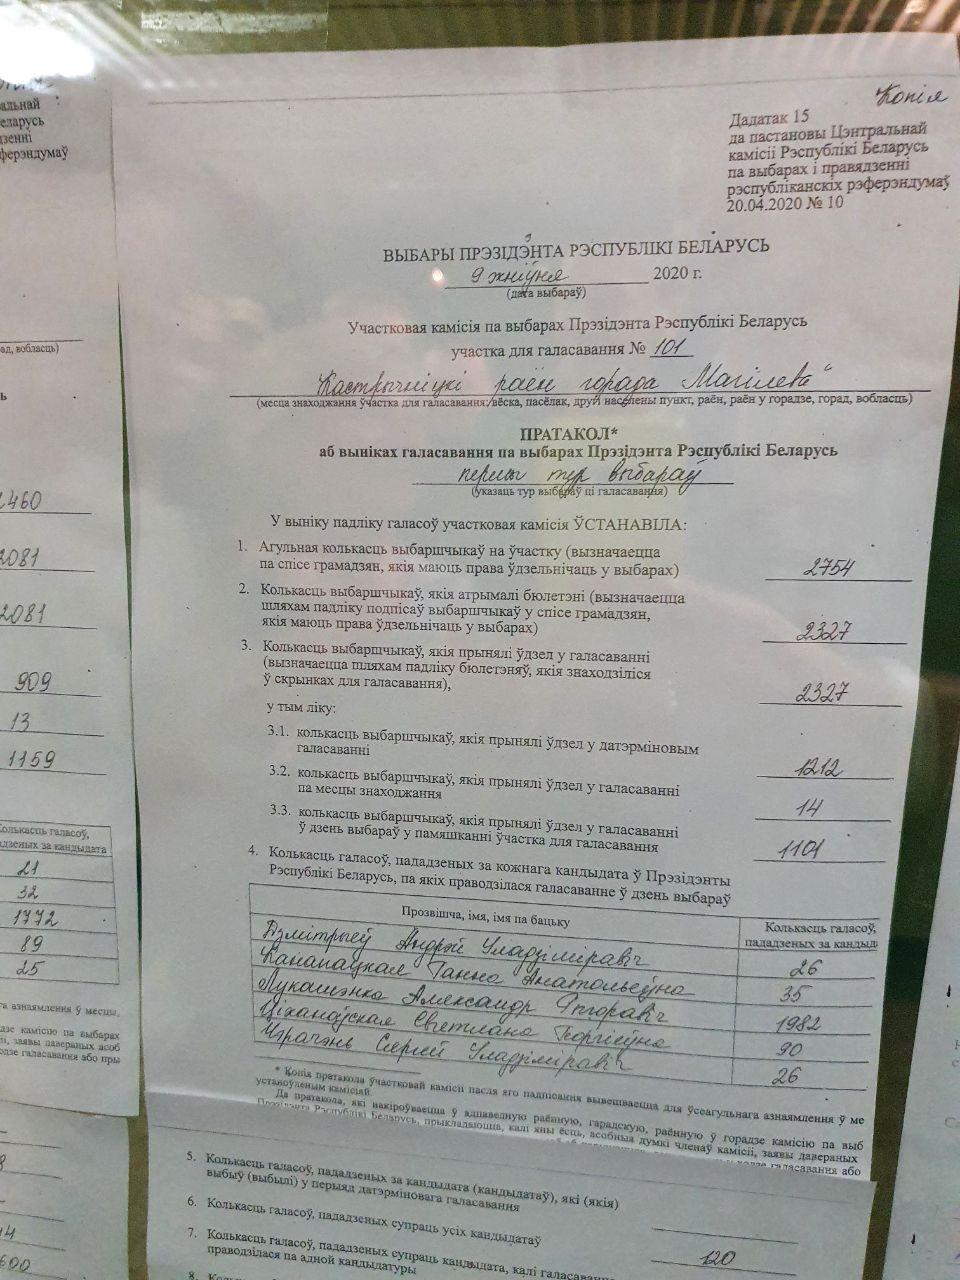 альнай
еларусь
дзенні
ферэндумаў
ад, вобласць)
2460
2081
2081
909
13
1159
Колькасць галасоў,
адзеных за кандыдата
21
32
1772
89
25
а азнаямлення ў месцы,
дзе камісію па выбарах
і, заявы давераных асоб
одзе галасавання або пры
14
600
Копія
Дадатак 15
да пастановы Цэнтральнай
камісіі Рэспублікі Беларусь
па выбарах і правядзенні
рэспубліканскіх рэферэндумаў
20.04.2020 № 10
ВЫБАРЫ ПРЭЗІДЭНТА РЭСПУБЛІКІ БЕЛАРУСЬ
9 жніўня 2020 г.
(дата выбараў)
Участковая камісія па выбарах Прэзідэнта Рэспублікі Беларусь
участка для галасавання № 101
Кастрычніцкі раён горада Магілёва
(месца знаходжання ўчастка для галасавання: вёска, пасёлак, другі населены пункт, раён, раён у горадзе, горад, вобласць)
ПРАТАКОЛ*
аб выніках галасавання па выбарах Прэзідэнта Рэспублікі Беларусь
першы тур выбараў
(указаць тур выбараў ці галасавання)
У выніку падліку галасоў участковая камісія ЎСТАНАВІЛА:
1. Агульная колькасць выбаршчыкаў на ўчастку (вызначаецца
па спісе грамадзян, якія маюць права ўдзельнічаць у выбарах) 2754
2. Колькасць выбаршчыкаў, якія атрымалі бюлетэні (вызначаецца
шляхам падліку подпісаў выбаршчыкаў у спісе грамадзян,
якія маюць права ўдзельнічаць у выбарах) 2327
3. Колькасць выбаршчыкаў, якія прынялі ўдзел у галасаванні
(вызначаецца шляхам падліку бюлетэняў, якія знаходзіліся
ў скрынках для галасавання), 2327
у тым ліку:
3.1. колькасць выбаршчыкаў, якія прынялі ўдзел у датэрміновым
галасаванні 1212
3.2. колькасць выбаршчыкаў, якія прынялі ўдзел у галасаванні
па месцы знаходжання 14
3.3. колькасць выбаршчыкаў, якія прынялі ўдзел у галасаванні
ў дзень выбараў у памяшканні ўчастка для галасавання 1101
4. Колькасць галасоў, пададзеных за кожнага кандыдата ў Прэзідэнты
Рэспублікі Беларусь, па якіх праводзілася галасаванне ў дзень выбараў
Прозвішча, імя, імя па бацьку
Колькасць галасоў,
пададзеных за кандыд
Дзмітрыеў Андрэй Уладзіміравіч 26
Канапацкая Ганна Анатольеўна 35
Лукашэнка Аляксандр Рыгоравіч 1982
Ціханоўская Святлана Георгіеўна 90
Чэрачэнь Сяргей Уладзіміравіч 26
* Копія пратакола ўчастковай камісіі пасля яго падпісання вывешваецца для ўсеагульнага азнаямлення ў ме
устаноўленым камісіяй.
Да пратакола, які накіроўваецца ў адпаведную раённую, гарадскую, раённую ў горадзе камісію па выб
Прэзідэнта Рэспублікі Беларусь, прыкладаюцца, калі яны ёсць, асобныя думкі членаў камісіі, заявы давераных
галасавання або
5. Колькасць галасоў, пададзеных за кандыдата (кандыдатаў), які (якія)
выбыў (выбылі) у перыяд датэрміновага галасавання
6. Колькасць галасоў, пададзеных супраць усіх кандыдатаў 120
7. Колькасць галасоў, пададзеных супраць кандыдата, калі галасаванне
праводзілася па адной кандыдатуры
8.